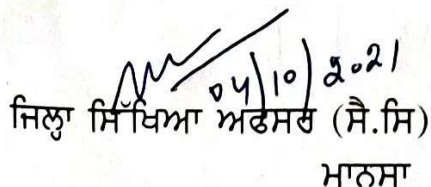 04/10/2021
ਜਿਲ੍ਹਾ ਸਿੱਖਿਆ ਅਫਸਰ (ਸੈ.ਸਿ)
ਮਾਨਸਾ